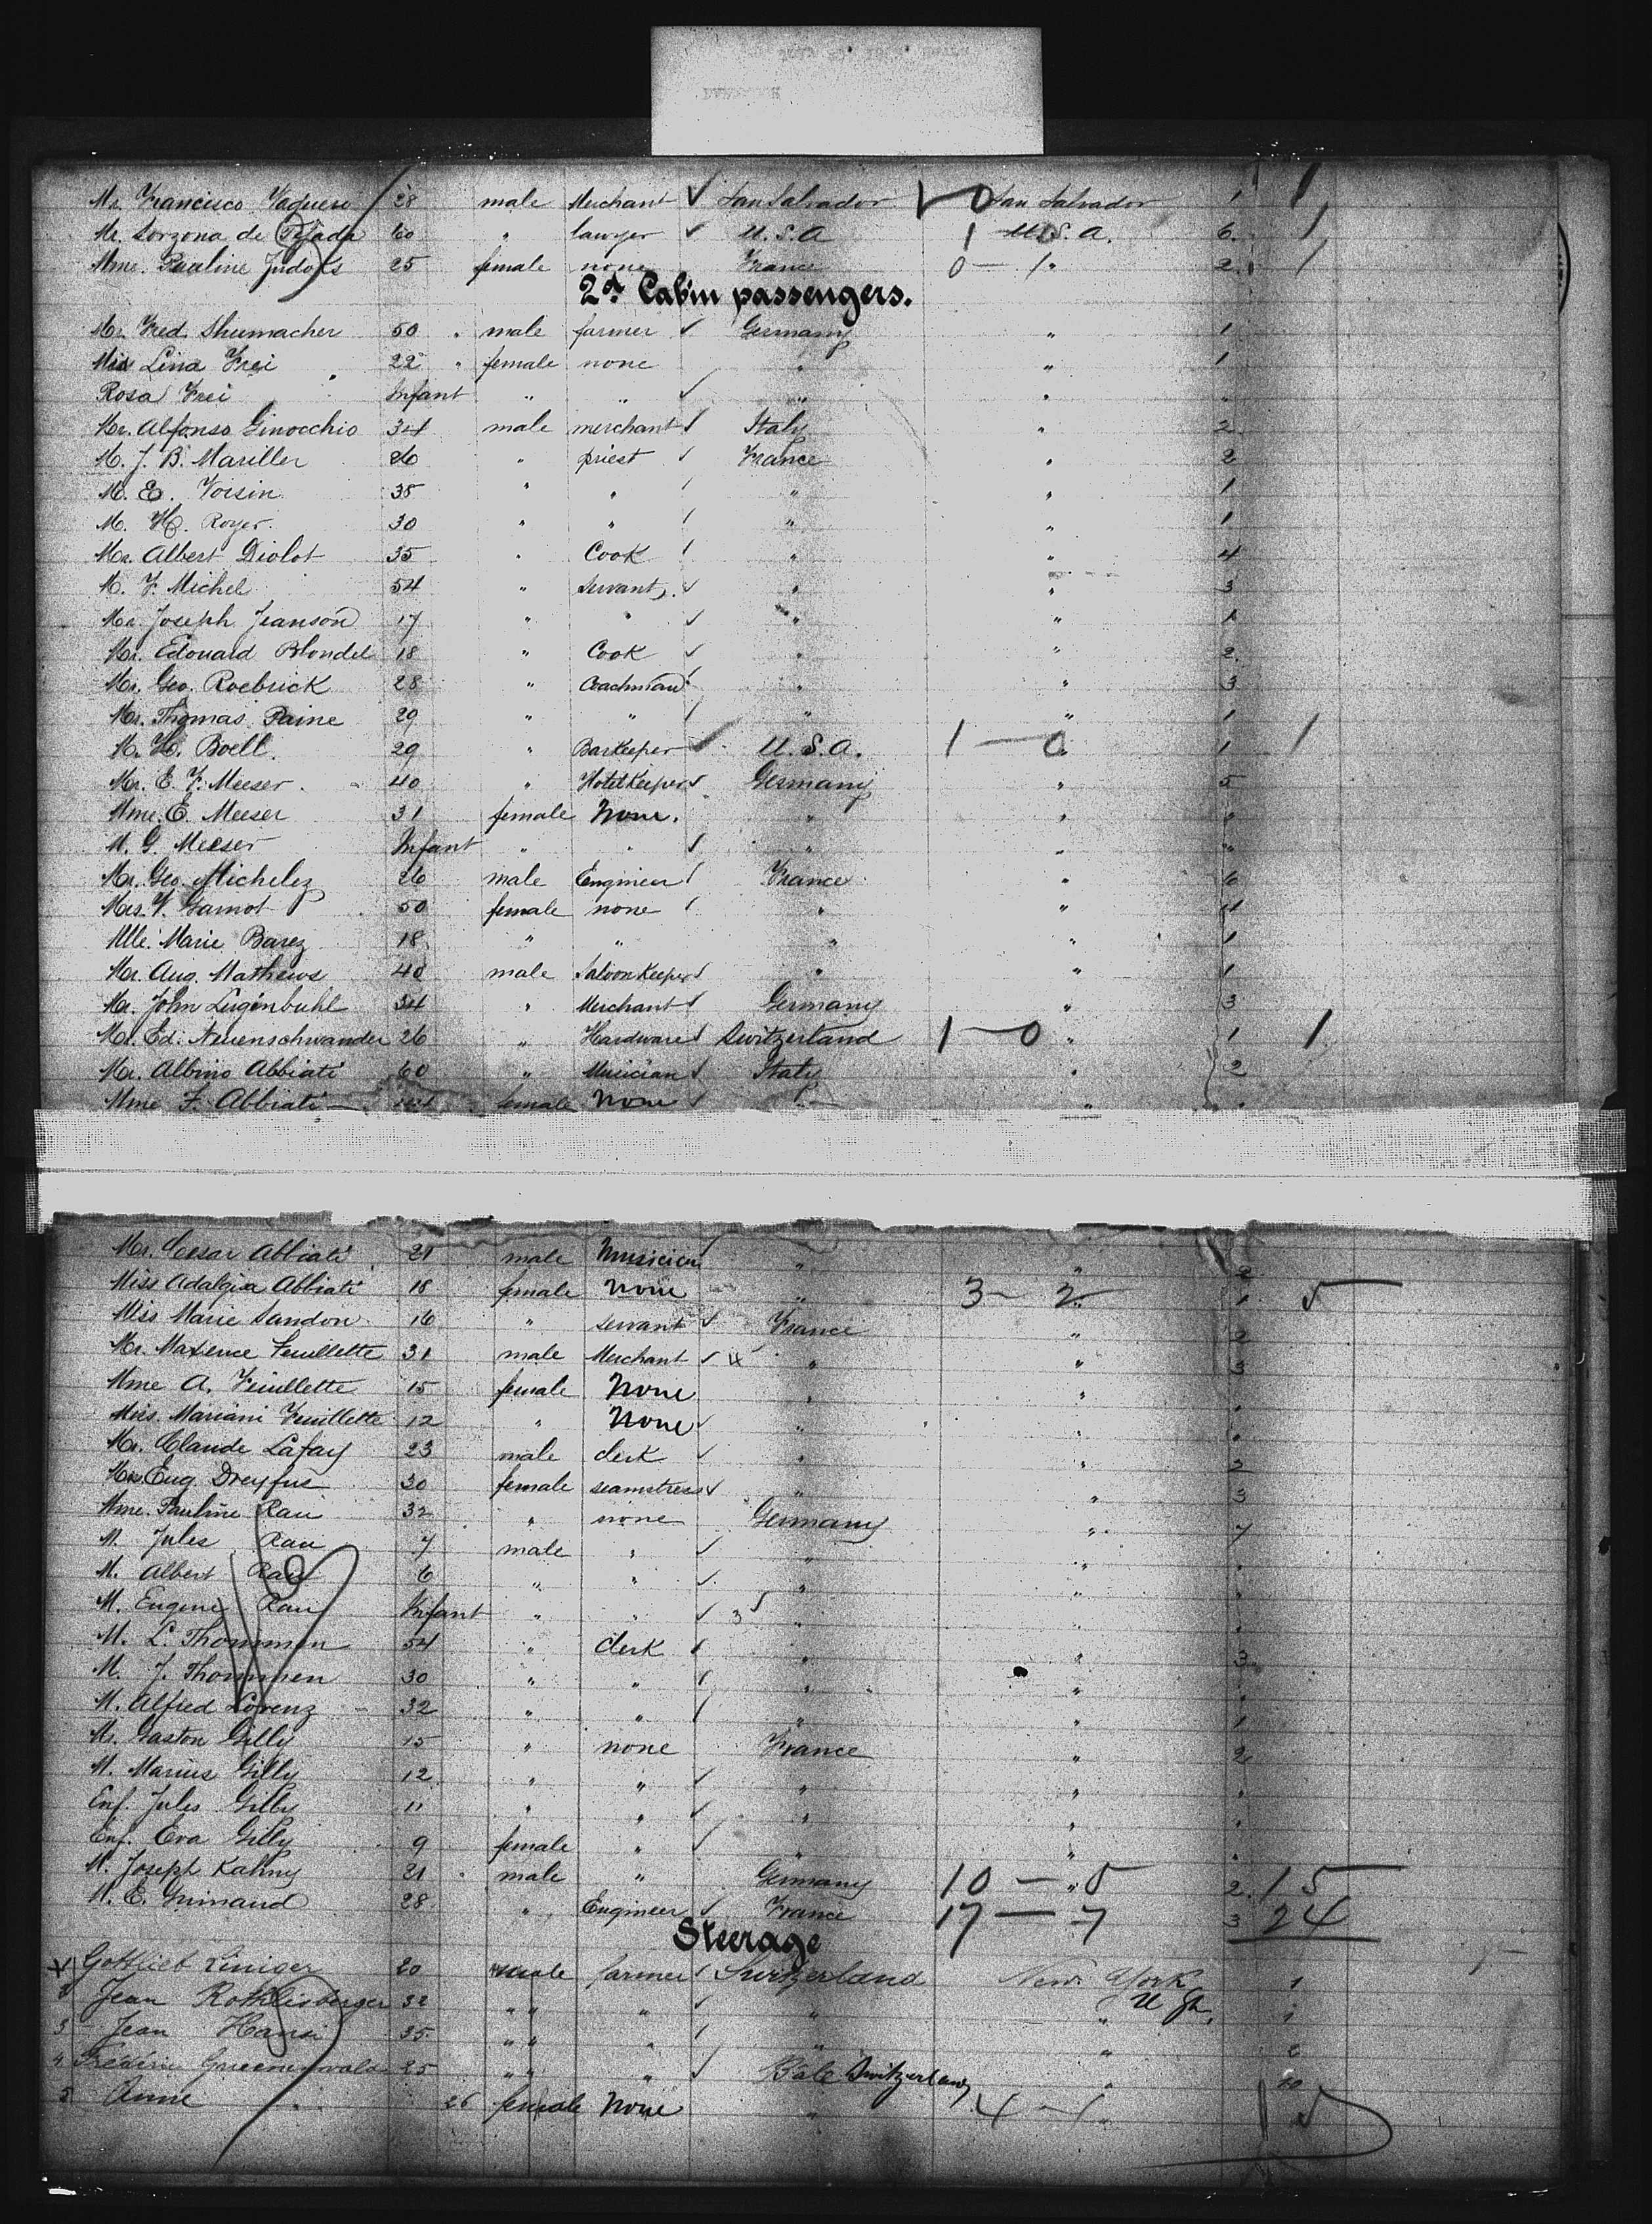 Mr. Francisco Vaquero 28 male Merchant ✓ San Salvador 1 0 San Salvador 1 1
Mr. Sorzona de Tejada 60 " lawyer ✓ U.S.A 1 U.S.A. 6. 1
Mme. Pauline 25 female none France 0 — 1 " 2. 1
2d Cabin passengers.
Mr. Fred Shumacher 50 male farmer ✓ Germany " 1
Miss Lina Frei 22 female none " " 1
Rosa Frei Infant " " ✓ " " "
Mr. Alfonso Ginocchio 34 male merchant ✓ Italy " 2
M. J. B. Mariller 26 " priest ✓ France " 2
M. E. Voisin 38 " " " " 1
M. H. Royer. 30 " " " " 1
Mr. Albert Diolot 35 " Cook " " 4
M. F. Michel 54 " servant ✓ " " 3
Mr. Joseph Jeanson 17 " " ✓ " " 1
Mr. Edouard Blondel 18 " Cook ✓ " " 2.
Mr. Geo. Roebrick 28 " Coachman " " 3
Mr. Thomas Paine 29 " " " " 1
M. H. Boell. 29 " Barkeeper ✓ U.S.A. 1 — 0 " 1 1
Mr. E. F. Meeser 40 " Hotelkeeper ✓ Germany " 5
Mme. E. Meeser 31 female None. " " "
M. G. Meeser Infant " " ✓ " " "
Mr. Geo. Michelez 26 male Engineer France " 6
Mrs. F. Garnot 50 female none " " 4
Mlle. Marie Barez 18. " " " " 1
Mr. Aug. Mathews 40 male Saloonkeeper ✓ " " 1
Mr. John Luginbuhl 34 " Merchant ✓ Germany " 3
Mr. Ed. Neuenschwander 26 " Hardware ✓ Switzerland 1 — 0 " 1 1
Mr. Albino Abbiati 60 " Musician ✓ Italy " 2
Mme F. Abbiati female None " " "
Mr. Cesar Abbiati 21 male Musician " " 2
Miss Adalgia Abbiati 18 female None " 3 - 2 " 1 5
Miss Marie Sandon 16 " servant ✓ France " 2
Mr. Maxence Feuillette 31 male Merchant ✓ 4 " " 3
Mme A. Feuillette 15 female None " " "
Miss. Mariani Feuillette 12 " None ✓ " " "
Mr. Claude Lafay 23 male clerk ✓ " " 2
Mrs. Eug. Dreyfus 30 female seamstress ✓ " " 3
Mme. Pauline Rau 32 " none Germany " 7
M. Jules Rau 7 male " ✓ " " "
M. Albert Rau 6 " " ✓ " " "
M. Eugene Rau Infant " " ✓ 3 " " "
M. L. Thommen 54 " clerk " " 3
M. J. Thommen 30 " " " " "
M. Alfred Lorenz 32 " " " " 1
Mr. Gaston Gilly 15 " none France " 2
M. Marius Gilly 12 " " ✓ " " "
Enf. Jules Gilly 11 " " ✓ " " "
Enf. Eva Gilly 9 female " ✓ " " "
M. Joseph Kahny 21 male " Germany 10 — 5 " 2. 15
M. E. Grimaud 28 " Engineer ✓ France 17 — 7 3 24
Steerage
Gottlieb Liniger 20 male farmer ✓ Switzerland New York 1
Jean Rothlisberger 32 " " " ✓ " " 1
3 Jean Hansi 35 " " " " " 2
4 Frederic Gruenenwald 25 " " " ✓ Bâle Switzerland " 10
5 Anne " 26 female None " 4 - 1 " 5